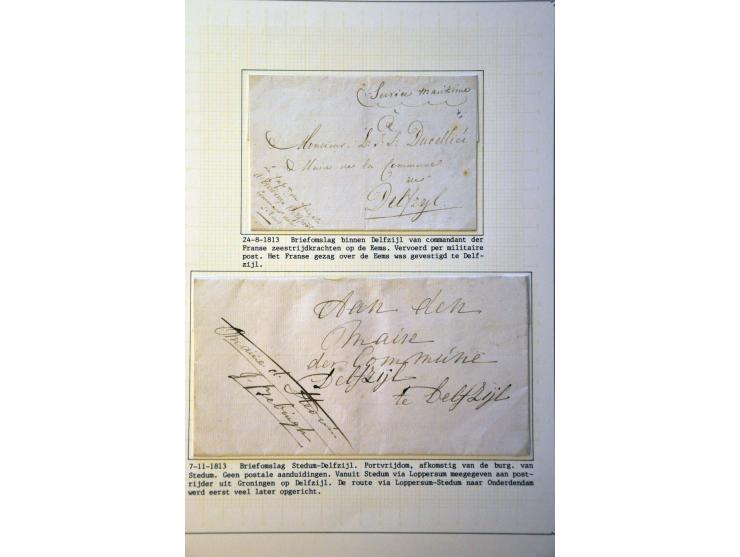 Service maritime
à
Monsieur L. J. S. Ducellié
Maire de la Commune
Delfzyl
24-8-1813 Briefomslag binnen Delfzijl van commandant der
Franse zeestrijdkrachten op de Eems. Vervoerd per militaire
post. Het Franse gezag over de Eems was gevestigd te Delf-
zijl.
Aan den
Maire
der Commune
Delfzijl
te Delfzijl
7-11-1813 Briefomslag Stedum-Delfzijl. Portvrijdom, afkomstig van de burg. van
Stedum. Geen postale aanduidingen. Vanuit Stedum via Loppersum meegegeven aan post-
rijder uit Groningen op Delfzijl. De route via Loppersum-Stedum naar Onderdendam
werd eerst veel later opgericht.